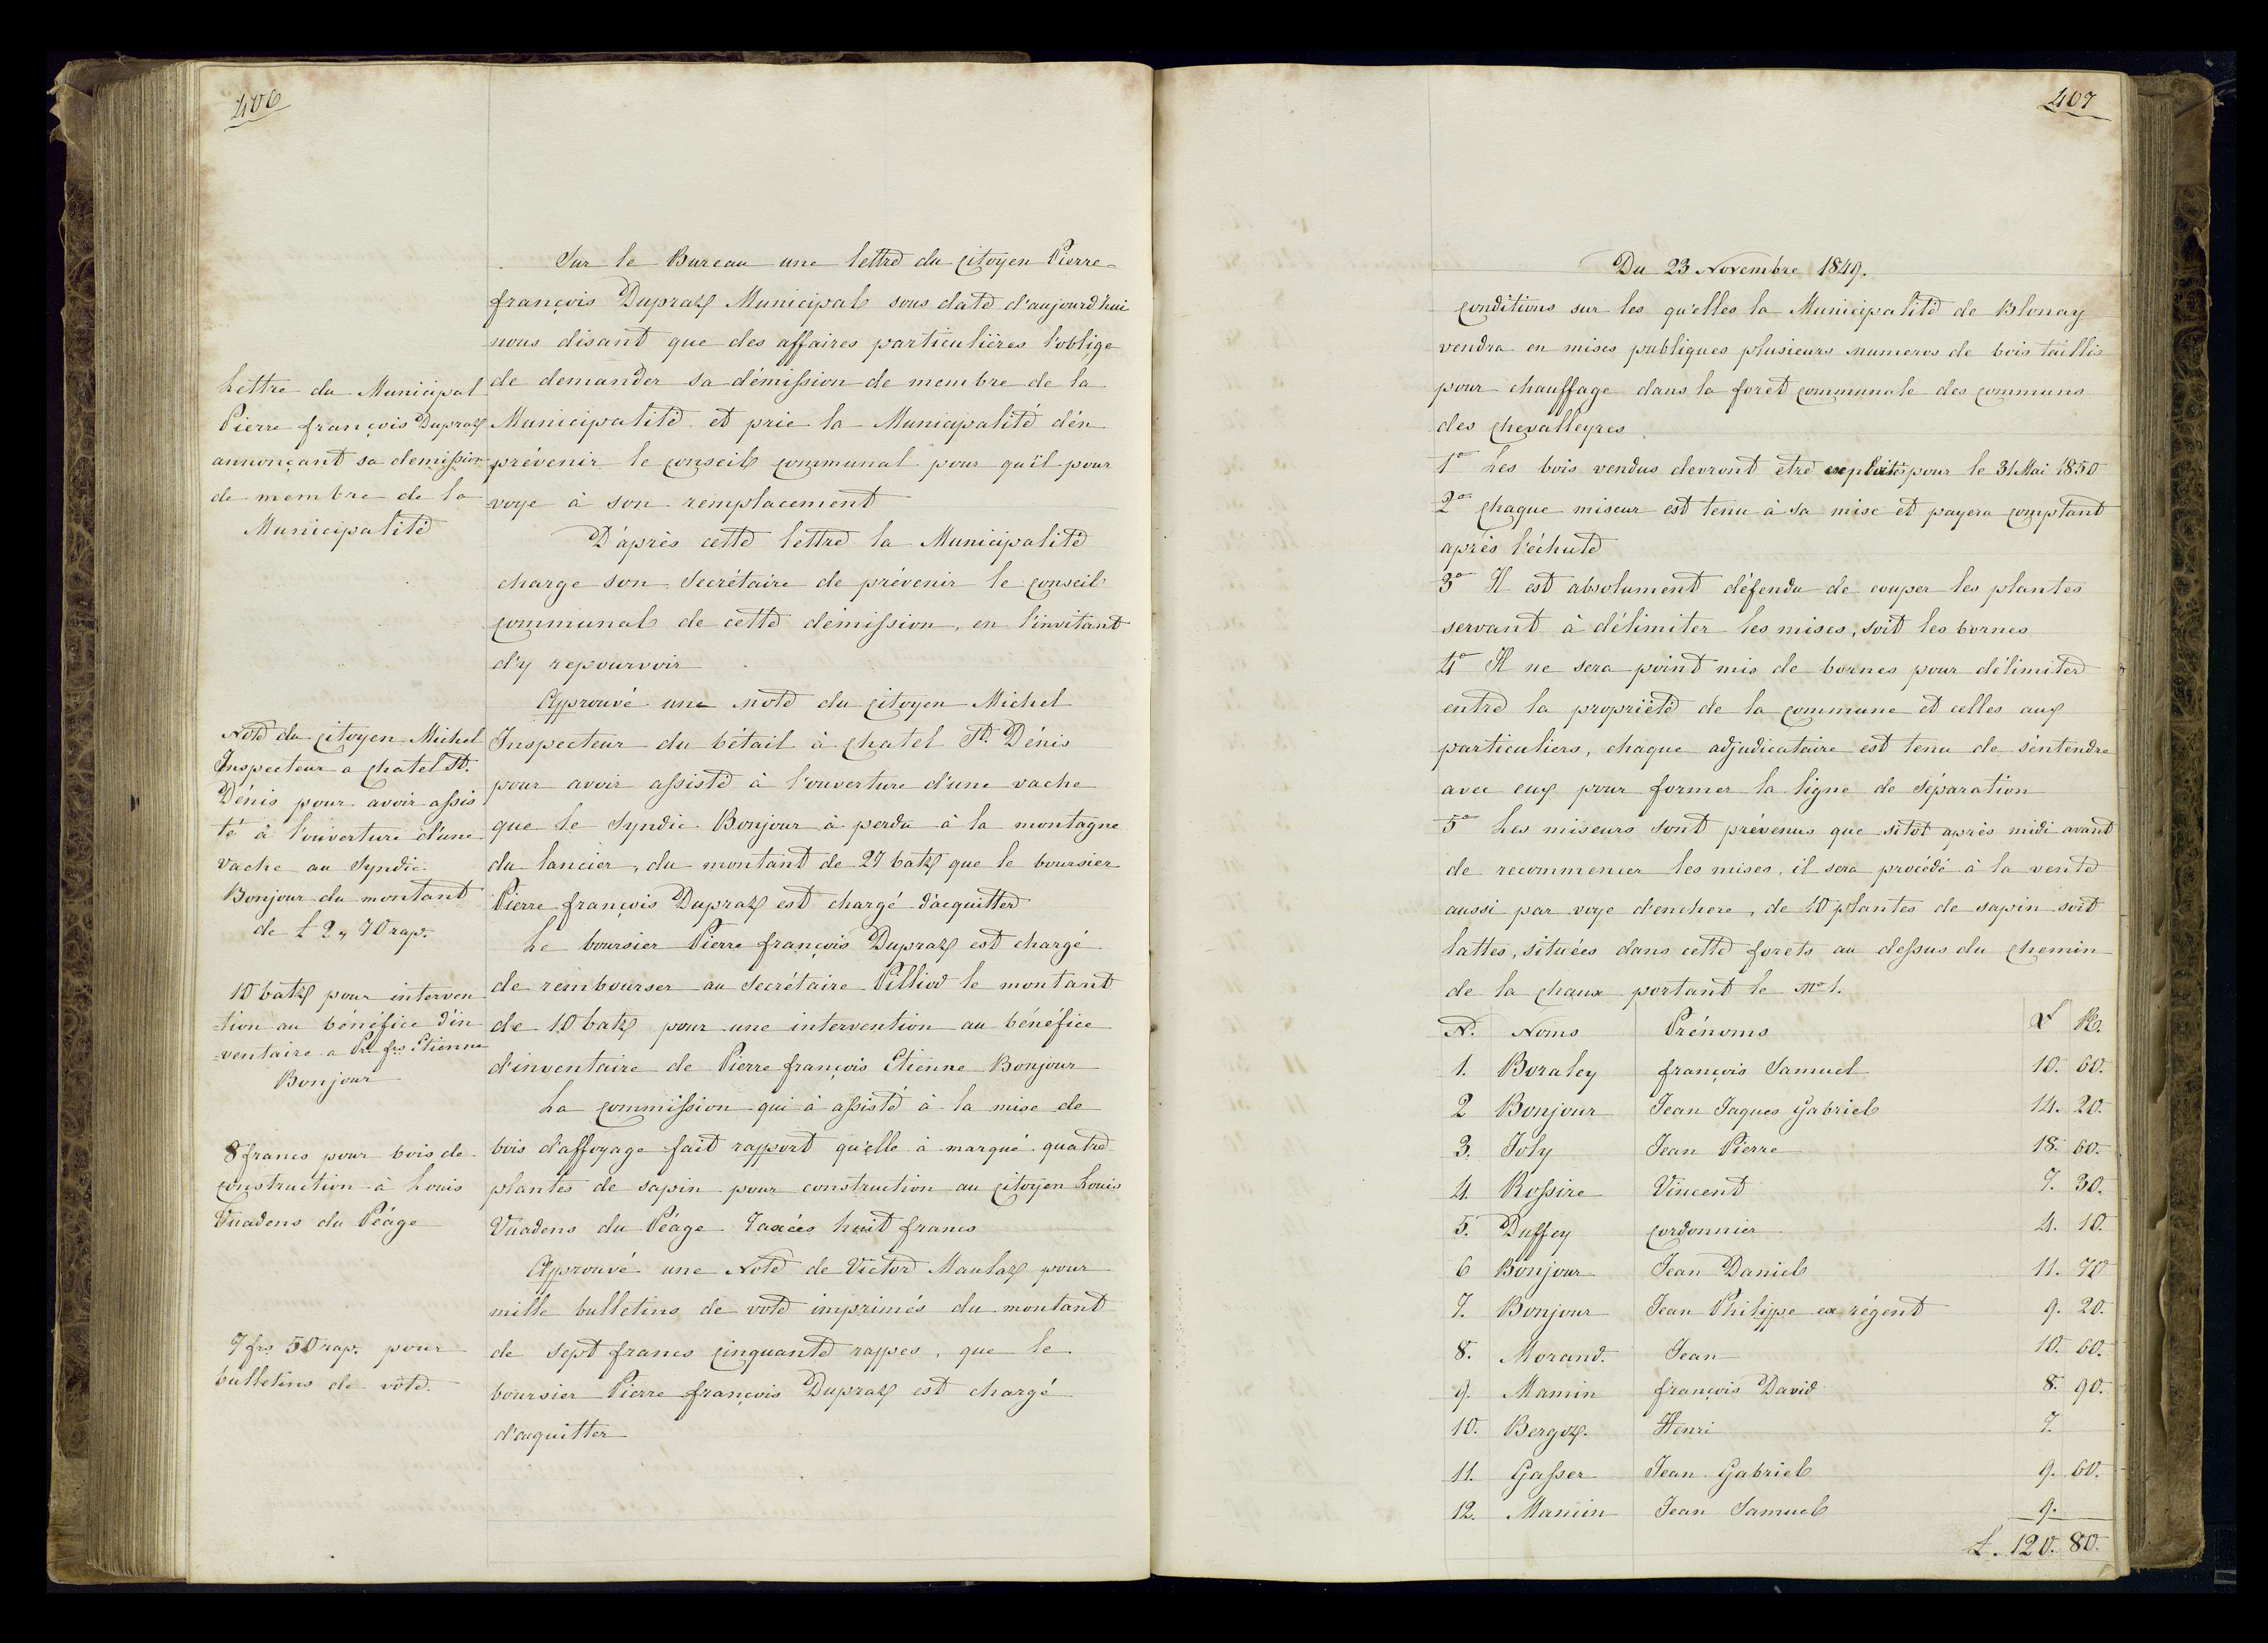 406
Sur le Bureau une lettre du citoyen Pierre
françois Dupraz Municipal sous date d'aujourd'hui
nous disant que des affaires particulières l'oblige
de demander sa démission de membre de la
Municipalité et prie la Municipalité d'en
prévenir le conseil communal pour qu'il pour
voye à son remplacement
D'après cette lettre la Municipalité
charge son Secrétaire de prévenir le conseil
communal de cette démission, en l'invitant
d'y repourvoir
Approuvé une note du citoyen Michel
Inspecteur du bétail à chatel St. Dénis
pour avoir assisté à l'ouverture d'une vache
que le Syndic Bonjour à perdu à la montagne
du lancier, du montant de 27 batz que le boursier
Pierre françois Dupraz est chargé d'acquitter
Le boursier Pierre françois Dupraz est chargé
de rembourser au Secrétaire Pilliod le montant
de 10 batz pour une intervention au bénéfice
d'inventaire de Pierre françois Etienne Bonjour
La commission qui à assisté à la mise de
bois d'affoyage fait rapport qu'elle à marqué quatre
plantes de sapin pour construction au citoyen Louis
Vuadens du Péage Taxées huit francs
Approuvé une Note de Victor Maulaz pour
mille bulletins de vote imprimés du montant
de sept francs cinquante rappes, que le
boursier Pierre françois Dupraz est chargé
d'acquitter
Lettre du Municipal
Pierre françois Dupraz
annonçant sa demission
de membre de la
Municipalité
Note du citoyen Michel
Inspecteur a chatel St.
Dénis pour avoir assis
té à l'ouverture d'une
vache au Syndic
Bonjour du montant
de £ 2,, 70 rap.
10 batz pour interven
tion au bénéfice d'in
ventaire a Pre frs Etienne
Bonjour
8 francs pour bois de
construction à Louis
Vuadens du Péage
7 frs 50 rap. pour
bulletins de vote.
407
Du 23 Novembre 1849.
conditions sur les qu'elles la Municipalité de Blonay
vendra en mises publiques plusieurs numeros de bois taillis
pour chauffage dans la foret communale des communs
des chevalleyres
1° Les bois vendus devront être exploités pour le 31 Mai 1850
2° chaque miseur est tenu à sa mise et payera comptant
après l'échute
3° Il est absolument défendu de couper les plantes
servant à délimiter les mises, soit les bornes
4° Il ne sera point mis de bornes pour délimiter
entre la propriété de la commune et celles aux
particuliers, chaque adjudicataire est tenu de s'entendre
avec eux pour former la ligne de séparation
5° Les miseurs sont prévenus que sitôt après midi avant
de recommencer les mises, il sera procédé à la vente
aussi par voye d'enchere, de 10 plantes de sapin soit
lattes, situées dans cette forets au dessus du chemin
de la chaux portant le No 1.
N. Noms Prénoms £ R.
1. Boraley françois Samuel 10. 60.
2 Bonjour Jean Jaques Gabriel 14. 20.
3. Joly Jean Pierre 18. 60.
4. Rossire Vincent 7. 30.
5. Duffey cordonnier 4. 10.
6 Bonjour Jean Daniel 11. 70
7. Bonjour Jean Philippe ex régent 9. 20.
8. Morand. Jean 10. 60.
9. Mamin françois David 8. 90.
10. Bergoz. Henri 7.
11. Gasser Jean Gabriel 9. 60.
12. Mamin Jean Samuel 9.
£. 120. 80.